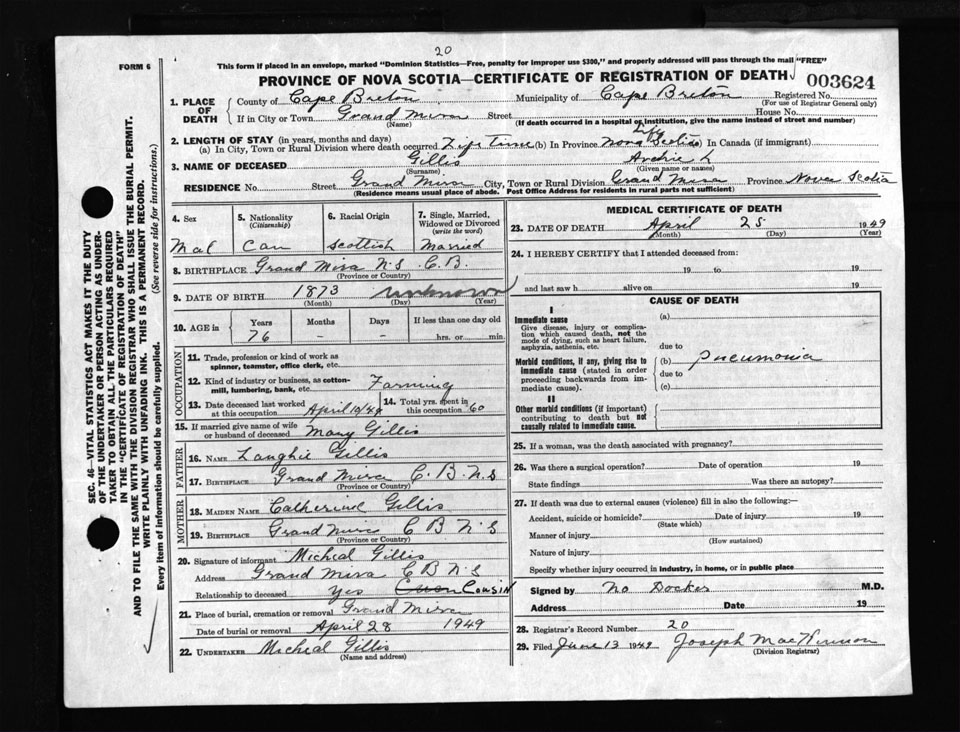 20
FORM 6
This form if placed in an envelope, marked "Dominion Statistics—Free, penalty for improper use $300," and properly addressed will pass through the mail "FREE"
PROVINCE OF NOVA SCOTIA—CERTIFICATE OF REGISTRATION OF DEATH
003624
1. PLACE OF DEATH
County of Cape Breton Municipality of Cape Breton Registered No.
(For use of Registrar General only)
If in City or Town Grand Mira Street House No.
(Name) (If death occurred in a hospital or institution, give the name instead of street and number)
2. LENGTH OF STAY (in years, months and days) Life
(a) In City, Town or Rural Division where death occurred Life Time (b) In Province Nova Scotia In Canada (if immigrant)
3. NAME OF DECEASED Gillis Archie L
(Surname) (Given name or names)
RESIDENCE No. Street Grand Mira City, Town or Rural Division Grand Mira Province Nova Scotia
(Residence means usual place of abode. Post Office Address for residents in rural parts not sufficient)
4. Sex
Mal
5. Nationality
(Citizenship)
Can
6. Racial Origin
Scottish
7. Single, Married, Widowed or Divorced
(write the word)
Married
8. BIRTHPLACE Grand Mira N.S. C.B.
(Province or Country)
9. DATE OF BIRTH 1873 unknown
(Month) (Day) (Year)
10. AGE in Years Months Days If less than one day old
76 - - hrs. or min.
OCCUPATION
11. Trade, profession or kind of work as
spinner, teamster, office clerk, etc.
12. Kind of industry or business, as cotton-
mill, lumbering, bank, etc. Farming
13. Date deceased last worked
at this occupation April 10/49
14. Total yrs. spent in
this occupation 60
15. If married give name of wife
or husband of deceased Mary Gillis
FATHER
16. NAME Laughie Gillis
17. BIRTHPLACE Grand Mira C.B. N.S
(Province or Country)
MOTHER
18. MAIDEN NAME Catherine Gillis
19. BIRTHPLACE Grand Mira C B N.S
(Province or Country)
20. Signature of informant Micheal Gillis
Address Grand Mira C B N S
Relationship to deceased yes Cousin
21. Place of burial, cremation or removal Grand Mira
Date of burial or removal April 28 1949
22. UNDERTAKER Micheal Gillis
(Name and address)
MEDICAL CERTIFICATE OF DEATH
23. DATE OF DEATH April 25 1949
(Month) (Day) (Year)
24. I HEREBY CERTIFY that I attended deceased from:
19 to 19
and last saw h alive on 19
CAUSE OF DEATH
I
Immediate cause (a)
Give disease, injury or complica-
tion which caused death, not the
mode of dying, such as heart failure,
asphyxia, asthenia, etc.
due to
Morbid conditions, if any, giving rise to (b) Pneumonia
immediate cause (stated in order due to
proceeding backwards from im- (c)
mediate cause).
II
Other morbid conditions (if important)
contributing to death but not
causally related to immediate cause.
25. If a woman, was the death associated with pregnancy?
26. Was there a surgical operation? Date of operation 19
State findings Was there an autopsy?
27. If death was due to external causes (violence) fill in also the following:—
Accident, suicide or homicide? Date of injury 19
(State which)
Manner of injury
(How sustained)
Nature of injury
Specify whether injury occurred in industry, in home, or in public place
Signed by No Docker M.D.
Address Date 19
28. Registrar's Record Number 20
29. Filed June 13 1949 Joseph MacKinnon
(Division Registrar)
SEC. 46—VITAL STATISTICS ACT MAKES IT THE DUTY
OF THE UNDERTAKER OR PERSON ACTING AS UNDER-
TAKER TO OBTAIN ALL THE PARTICULARS REQUIRED
IN THE "CERTIFICATE OF REGISTRATION OF DEATH"
AND TO FILE THE SAME WITH THE DIVISION REGISTRAR WHO SHALL ISSUE THE BURIAL PERMIT.
WRITE PLAINLY WITH UNFADING INK. THIS IS A PERMANENT RECORD.
Every item of information should be carefully supplied. (See reverse side for instructions.)